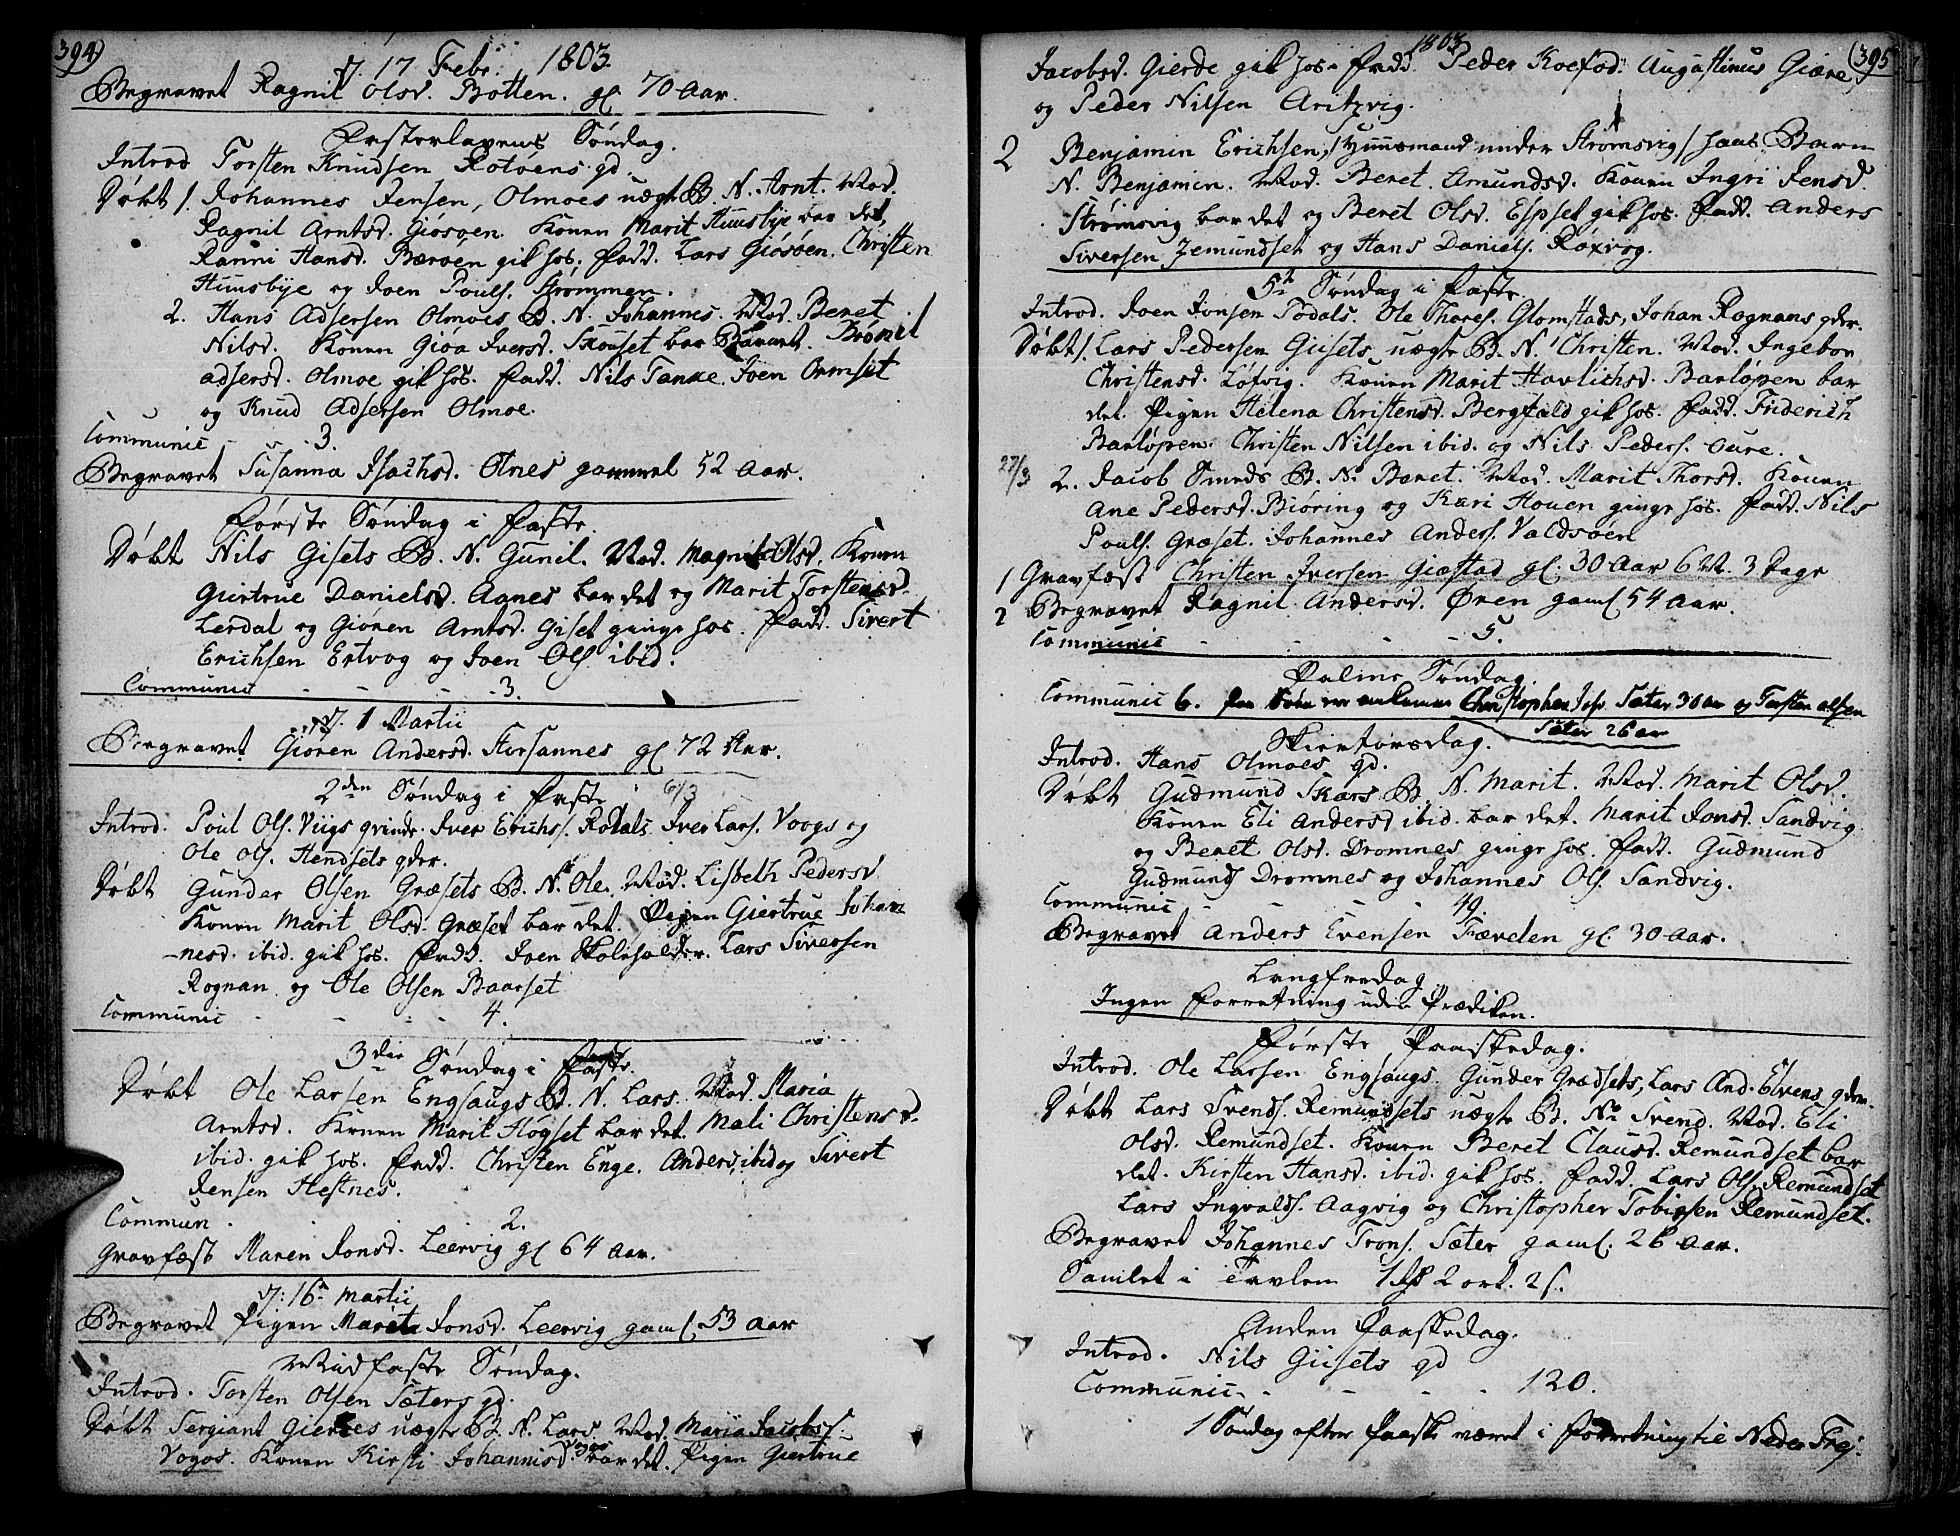 394)
d. 17 Febr. 1803.
Begravet Ragnil Olsd. Botten. gl 70 Aar.
Fasterlavens Søndag.
Introd Torsten Knudsen Rotøens gd.
Døbt 1. Johannes Jensen, Olmoes uægte B. N. Arnt. Mod.
Ragnil Arntsd. Giøsøen. Konen Marit Huusbye bar det,
Ranni Hansd. Bærøen gik hos. Fadd. Lars Giøsøen. Christen
Huusbye og Joen Pouls. Strømmen.
2. Hans Adsersen Olmoes B. N. Johannes. Mod. Beret
Nilsd. Konen Gioa Iversd. Skouset bar Barnet. Brønil
adsersd. Olmoe gik hos. Fadd. Nils Tanke. Joen Ormset
og Knud Adsersen Olmoe.
Communic - - 3.
Begravet Susanna Isachsd. Otnes gammel 52 Aar.
Første Søndag i Faste.
Døbt Nils Gisets B. N. Gunil. Mod. Magnil Olsd. Konen
Giertrue Danielsd. Agnes bar det og Marit Torstensd.
Lerdal og Giøren Arntsd. Giset ginge hos. Fadd. Sivert
Erichsen Ertvog og Joen Ols. ibid.
Communic - - - - 3.
d. 1 Martii
Begravet Giøren Andersd. Storsannes gl 72 Aar.
2den Søndag i Faste 6/3
Introd. Poul Ols. Viigs qvinde. Iver Erichs. Rodals. Iver Lars. Voogs og
Ole Ols. Hendsets qder.
Døbt Gunder Olsen Græsets B. N. Ole. Mod. Lisbeth Pedersd
Konen Marit Olsd. Græset bar det. Pigen Giertrue Johan
nesd. ibid. gik hos. Fadd. Joen Skoleholder. Lars Siversen
Rognan og Ole Olsen Baarset
Communic - - - - 4.
3die Søndag i Faste.
Døbt Ole Larsen Engsaugs B. N. Lars. Mod. Maria
Arntsd. Konen Marit Høgset bar det. Mali Christensd.
ibid. gik hos. Fadd. Christen Enge. Anders, ibid og Sivert
Jensen Hestnes.
Commun. 2.
Gravfæst Maren Jonsd. Leervig gl 64 Aar.
d: 16 Martii
Begravet Pigen Marit Jonsd. Leervig gaml. 53 Aar
Midfaste Søndag.
Introd. Torsten Olsen Sæters gd.
Døbt Sergiant Gierdes uægte B. N. Lars. Mod. Maria Jacobs
Vogos. Konen Kirsti Johannisd. bar det. Pigen Giertrue
1803
(395
Jacobsd. Gierde gik hos. Fadd. Peder Koefod. Augustinus Giære,
og Peder Nilsen Aritzvig.
2 Benjamin Erichsen, /Huusmand under Strømsvig/ hans Barn
N. Benjamin. Mod. Beret. Amundsd. Konen Ingri Jensd.
Strømsvig bar det og Beret Olsd. Espset gik hos. Fadd. Anders
Siversen Zemundset og Hans Daniels. Røxvog.
5te Søndag i Faste.
Introd. Joen Jonsen Tødals. Ole Thores. Glomstads, Johan Rognans qder.
Døbt 1. Lars Pedersen Giisets uægte B. N. Christen. Mod. Ingebor
Christensd. Løfvig. Konen Marit Havlichsd. Barløpen bar
det. Pigen Helena Christensd. Bergfald gik hos. Fadd. Friderich
Barløpen. Christen Nilsen ibid. og Nils Peders. Oure.
27/3 2. Jacob Smeds B. N. Beret. Mod. Marit Thorsd. Konen
Ane Pedersd. Biøring og Kari Houen ginge hos. Fadd. Nils
Pouls. Græset. Johannes Anders. Valdsøen
1 Gravfæst Christen Iversen Giæstad gl. 30 Aar 6 M. 3 Dage
2 Begravet Ragnil Andersd. Ønen gaml 54 Aar.
Communic - - - - 5.
Palme Søndag.
Communic 6. paa Søen er omkomne Christopher Joh. Sæter 30 aar og Torsten olsen
Sæter 26 ar
Skiertorsdag.
Introd. Hans Olmoes gd.
Døbt Gudmund Skars B. N. Marit. Mod. Marit Olsd.
Konen Eli Andersd ibid. bar det. Marit Jonsd. Sandvig
og Beret Olsd. Dromnes ginge hos. Fadd. Gudmund
Gudmunds Dromnes og Johannes Ols. Sandvig.
Communic - - - - 49.
Begravet Anders Evensen Fævelen gl. 30 Aar.
Langfredag
Ingen Forretning uden Prædiken.
Første Paaskedag.
Introd. Ole Larsen Engsaugs. Gunder Grædsets, Lars And. Elvens qder.
Døbt Lars Svends. Remundsets uægte B. N. Svend. Mod. Eli
Olsd. Remundset. Konen Beret Clausd. Remundset bar
det. Kirsten Hansd. ibid. gik hos. Fadd. Lars Ols. Remundset
Lars Ingvalds. Aagvig og Christopher Tobiasen Remundset.
Begravet Johannes Trons. Sæter gaml. 26 Aar.
Samlet i Tavlen 1 rd 2 ort. 2 s.
Anden Paaskedag.
Introd. Nils Giisets gd
Communic - - - - 120.
1 Søndag efter Paaske været i Forretning til Neder Frej.